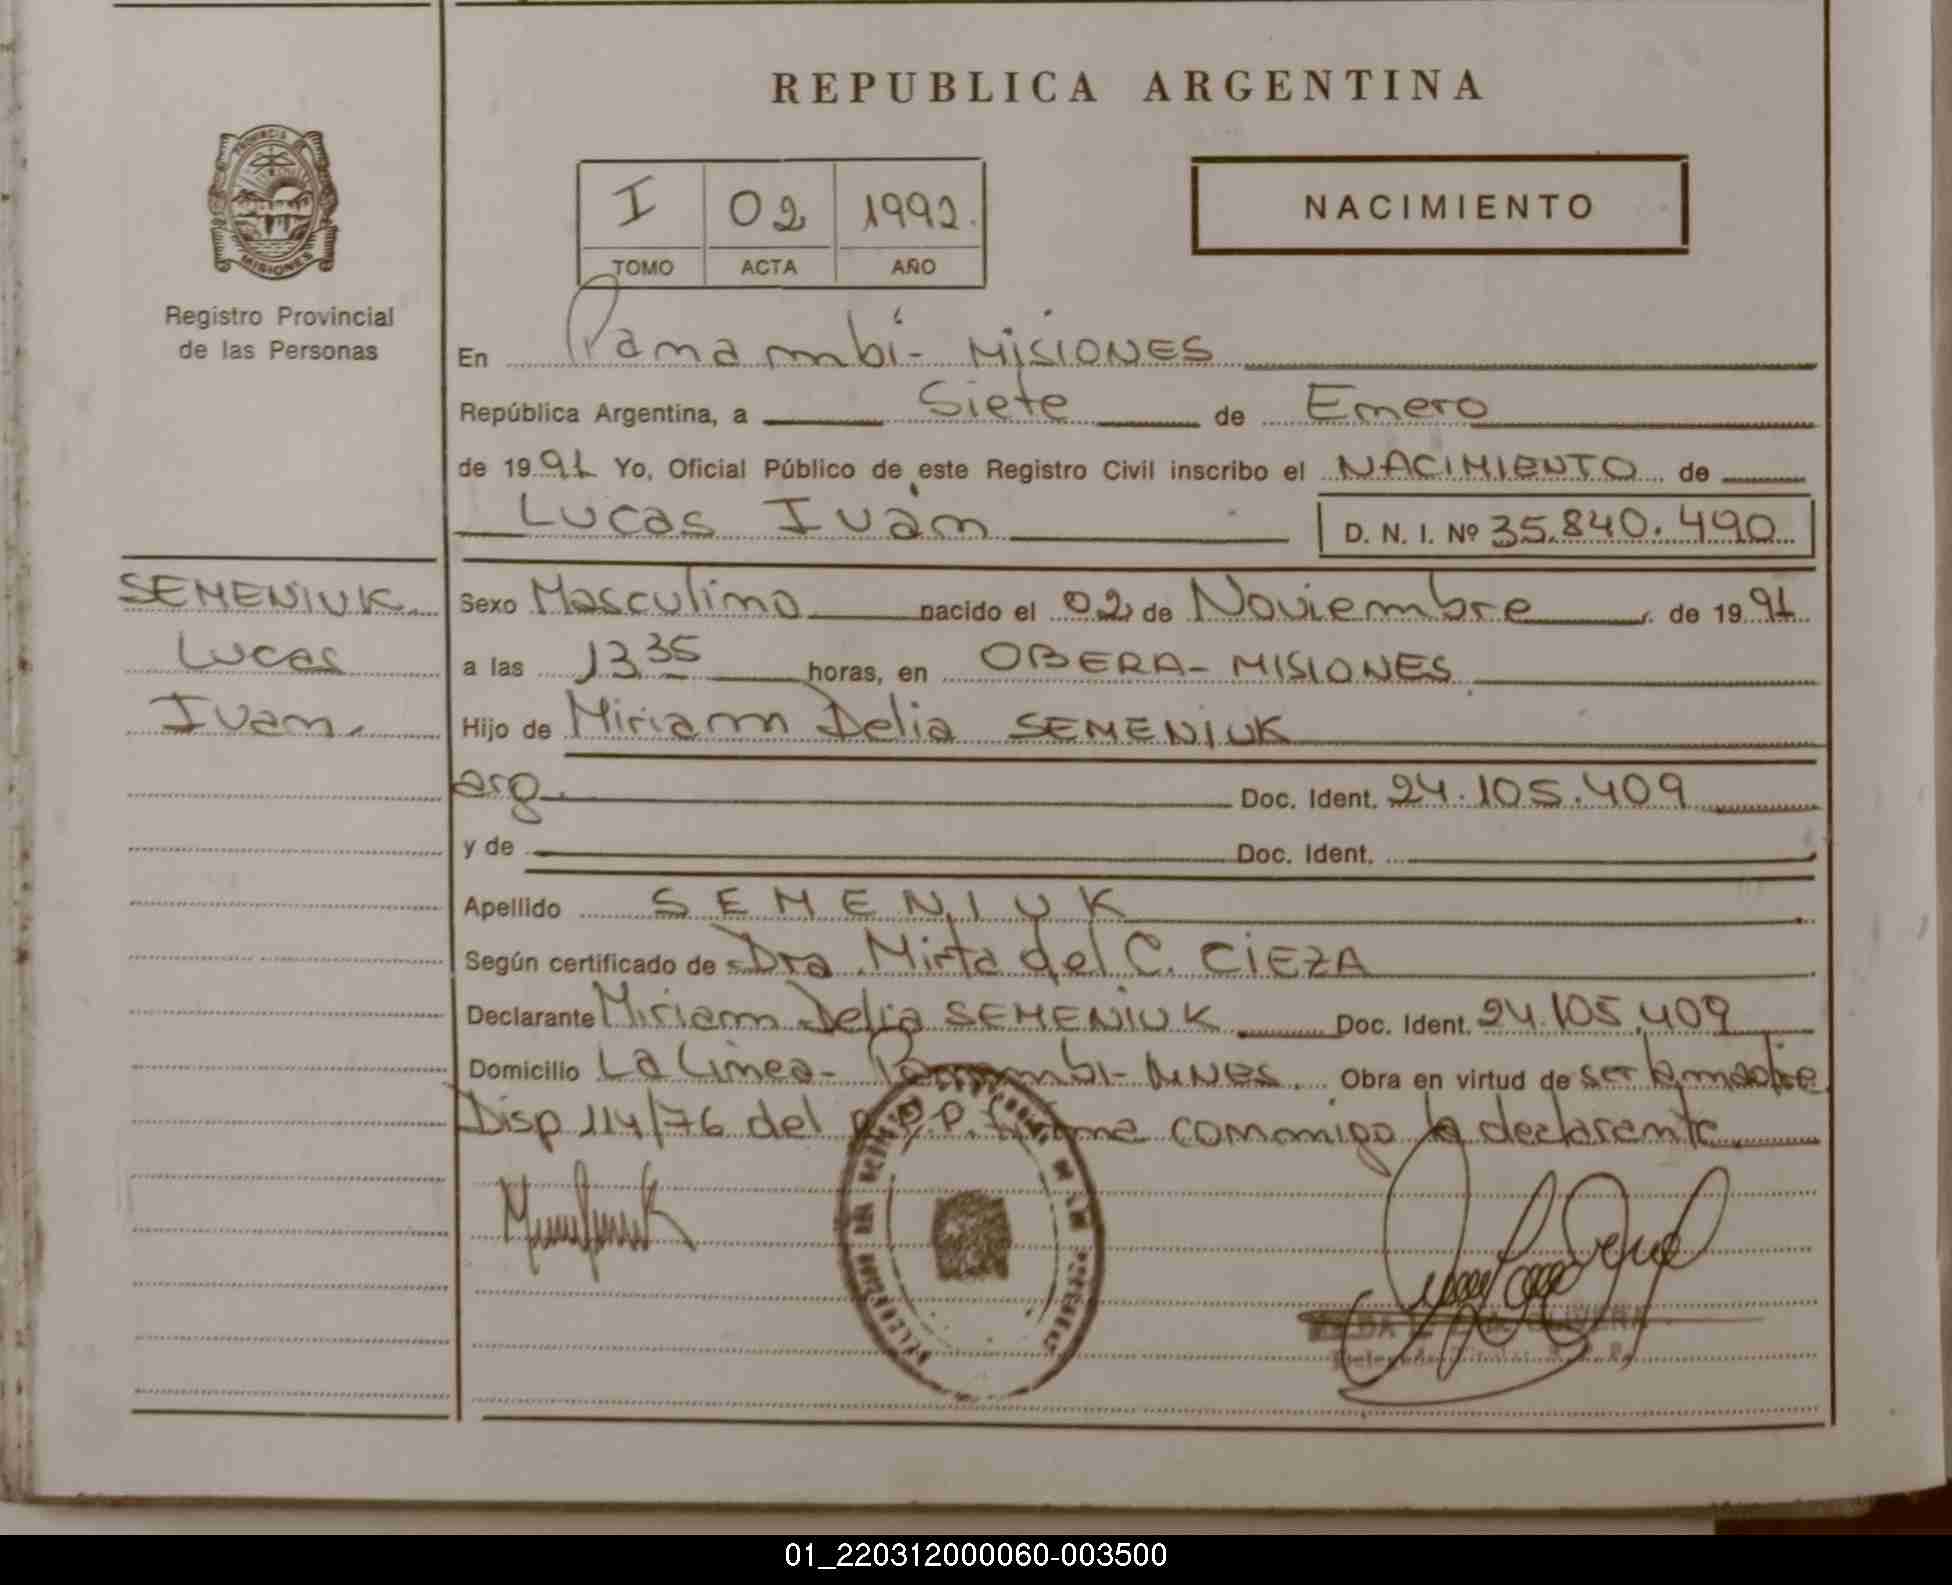 REPUBLICA ARGENTINA
PROVINCIA
MISIONES
Registro Provincial
de las Personas
I 02 1992.
TOMO ACTA AÑO
NACIMIENTO
En Panambí - MISIONES
República Argentina, a Siete de Enero
de 1991 Yo, Oficial Público de este Registro Civil inscribo el NACIMIENTO de
Lucas Iván D. N. I. Nº 35.840.490
SEMENIUK
Lucas
Ivan.
Sexo Masculino nacido el 02 de Noviembre de 1991
a las 13 35 horas, en OBERA - MISIONES
Hijo de Miriam Delia SEMENIUK
arg. Doc. Ident. 24.105.409
y de Doc. Ident.
Apellido SEMENIUK
Según certificado de Dra Mirta del C. CIEZA
Declarante Miriam Delia SEMENIUK Doc. Ident. 24.105.409
Domicilio La Linea - Panambi - Mnes. Obra en virtud de ser la madre
Disp 114/76 del R.P.P. firma conmigo la declarante
01_220312000060-003500